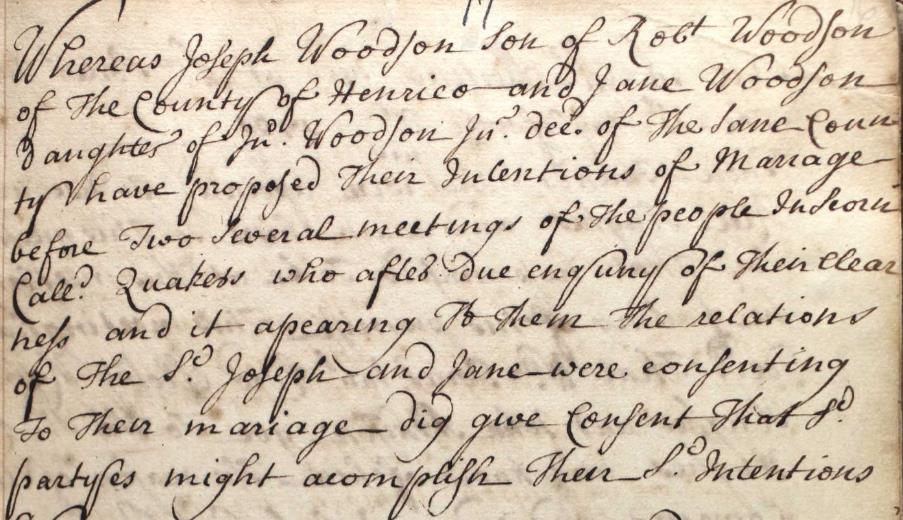 Whereas Joseph Woodson Son of Robt Woodson
of The County of Henrico and Jane Woodson
daughter of Jno. Woodson Jur. dec. of The Same Coun
ty have proposed Their Intentions of Mariage
before Two Several meetings of The people In Scorn
Calld. Quakers who after due enquiry of Their Clear
ness and it apearing To Them The relations
of The Sd. Joseph and Jane were consenting
To Their mariage did give Consent That Sd.
partyes might acomplish Their Sd. Intentions